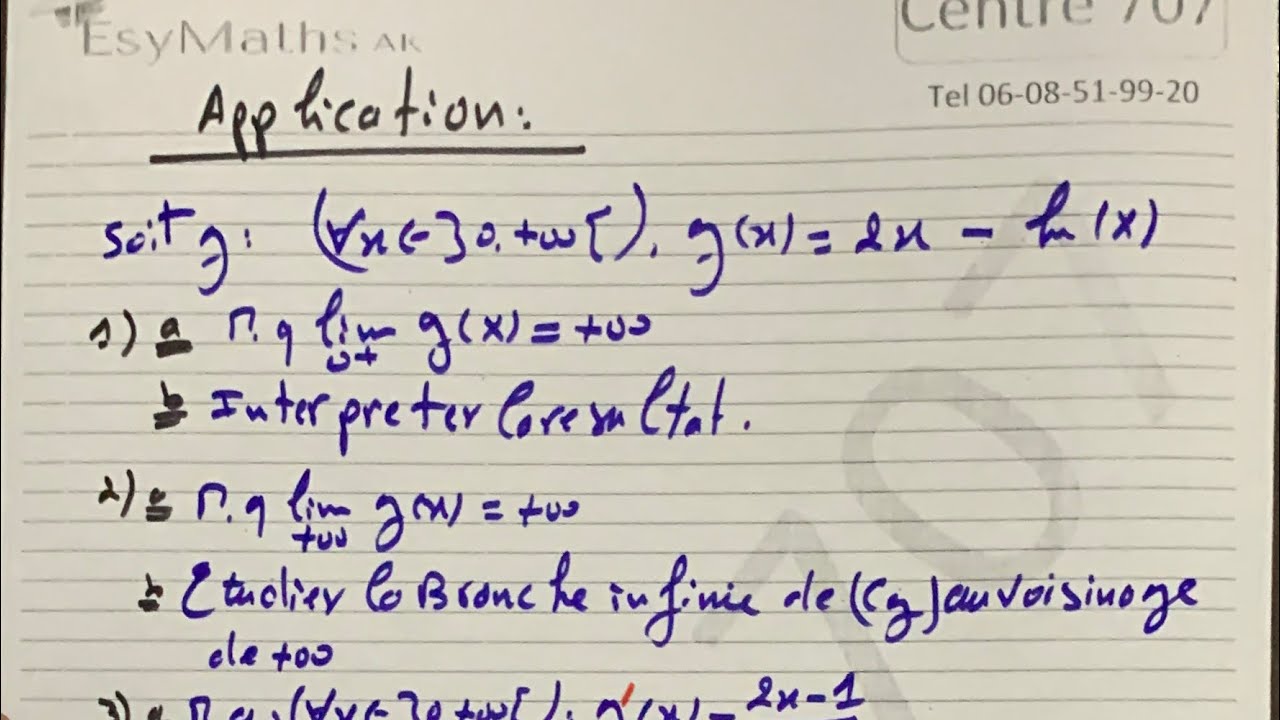 EsyMaths AK
Centre 707
Tel 06-08-51-99-20
Application:
Soit g: (∀x∈]0,+∞[). g(x) = 2x - ln(x)
1) a M.q lim g(x) = +∞
0+
b Interpreter le resultat.
2) a M.q lim g(x) = +∞
+∞
b Etudier la Branche infinie de (Cg) au voisinage
de +∞
3) a M.q: (∀x∈]0,+∞[): g'(x) = 2x-1
707